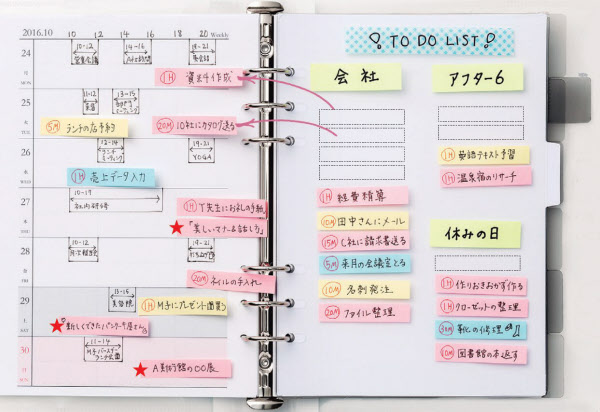 2016.10 10 12 14 16 18 20 Weekly
24
MON.
10-12
営業会議
14-16
A社訪問
19-21
英会話
1H 資料作成
25
TUE.
11-12
来客
13-15
ミーティング
5M ランチの店予約
20M 10社にカタログ送る
26
WED.
12-14
ランチミーティング
19-21
YOGA
1H 売上データ入力
27
THU.
10-19
社内研修
1H Y先生にお礼の手紙
★「美しいマナー&話しろ」
28
FRI.
10-12
月次報告
19-21
打ち上げ
20M ネイルの手入れ
29
SAT.
13-15
美容院
1H M子にプレゼント買う
★新しくできたパンケーキ屋さん
30
SUN.
11-14
M子バースデーランチ会
★ A美術館の〇〇展
TO DO LIST!
会社
1H 経費精算
10M 田中さんにメール
15M C社に請求書送る
5M 来月の会議室とる
10M 名刺発注
20M ファイル整理
アフター6
1H 英語テキスト予習
1H 温泉宿のリサーチ
休みの日
1H 作りおきおかず作る
1H クローゼットの整理
30M 靴の修理
10M 図書館の本返す